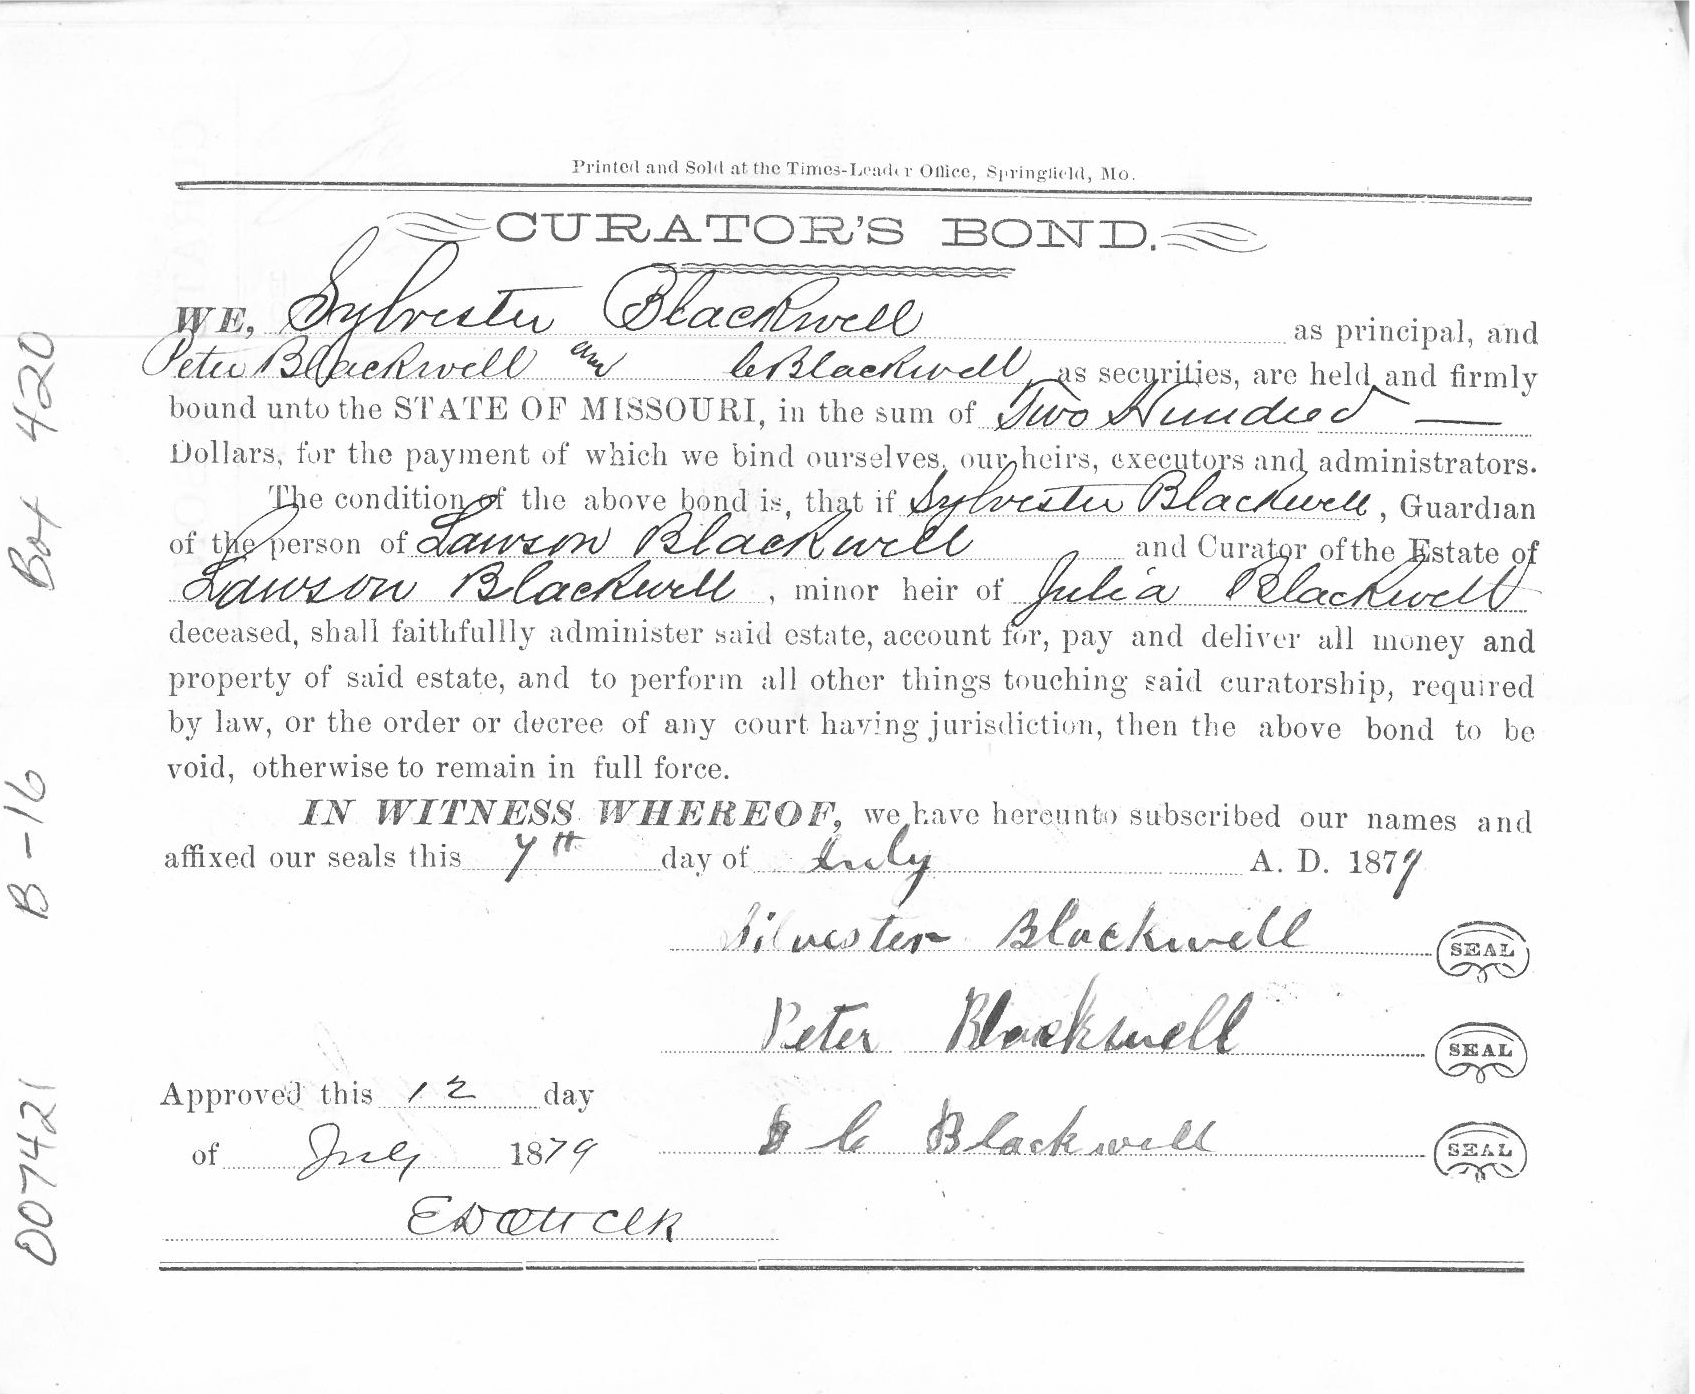 Printed and Sold at the Times-Leader Office, Springfield, Mo.
CURATOR'S BOND.
WE, Sylvester Blackwell as principal, and
Peter Blackwell and C Blackwell, as securities, are held and firmly
bound unto the STATE OF MISSOURI, in the sum of Two Hundred —
Dollars, for the payment of which we bind ourselves, our heirs, executors and administrators.
The condition of the above bond is, that if Sylvester Blackwell, Guardian
of the person of Lawson Blackwell and Curator of the Estate of
Lawson Blackwell, minor heir of Julia Blackwell
deceased, shall faithfullly administer said estate, account for, pay and deliver all money and
property of said estate, and to perform all other things touching said curatorship, required
by law, or the order or decree of any court having jurisdiction, then the above bond to be
void, otherwise to remain in full force.
IN WITNESS WHEREOF, we have hereunto subscribed our names and
affixed our seals this 7th day of July A. D. 1879
Silvester Blackwell SEAL
Peter Blackwell SEAL
Approved this 12 day
C Blackwell SEAL
of July 1879
007421 B-16 Box 420